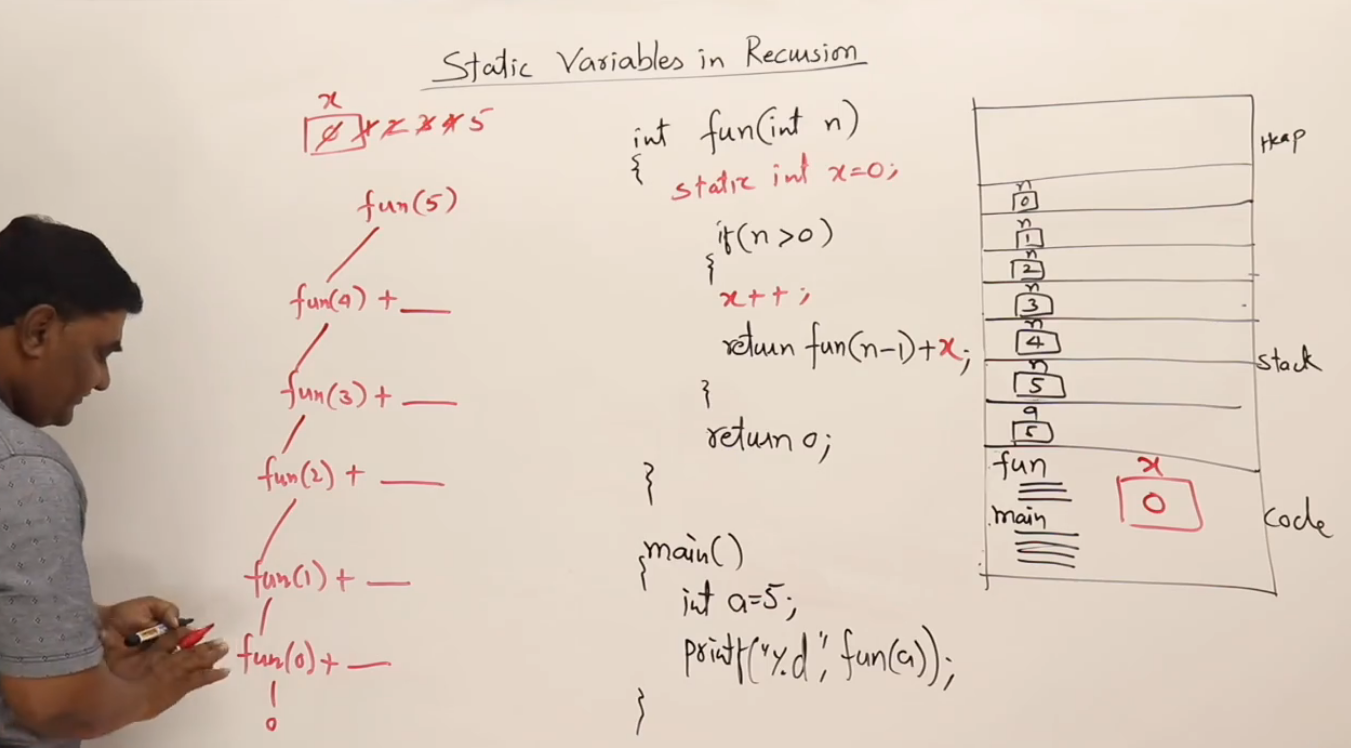 Static Variables in Recursion
x
0 1 2 3 4 5
fun(5)
fun(4) + __
fun(3) + __
fun(2) + __
fun(1) + __
fun(0) + __
0
int fun(int n)
{
static int x=0;
if(n>0)
{
x++;
return fun(n-1)+x;
}
return 0;
}
main()
{
int a=5;
printf("%d", fun(a));
}
Heap
n
0
n
1
n
2
n
3
n
4
n
5
a
5
stack
fun
main
x
0
code